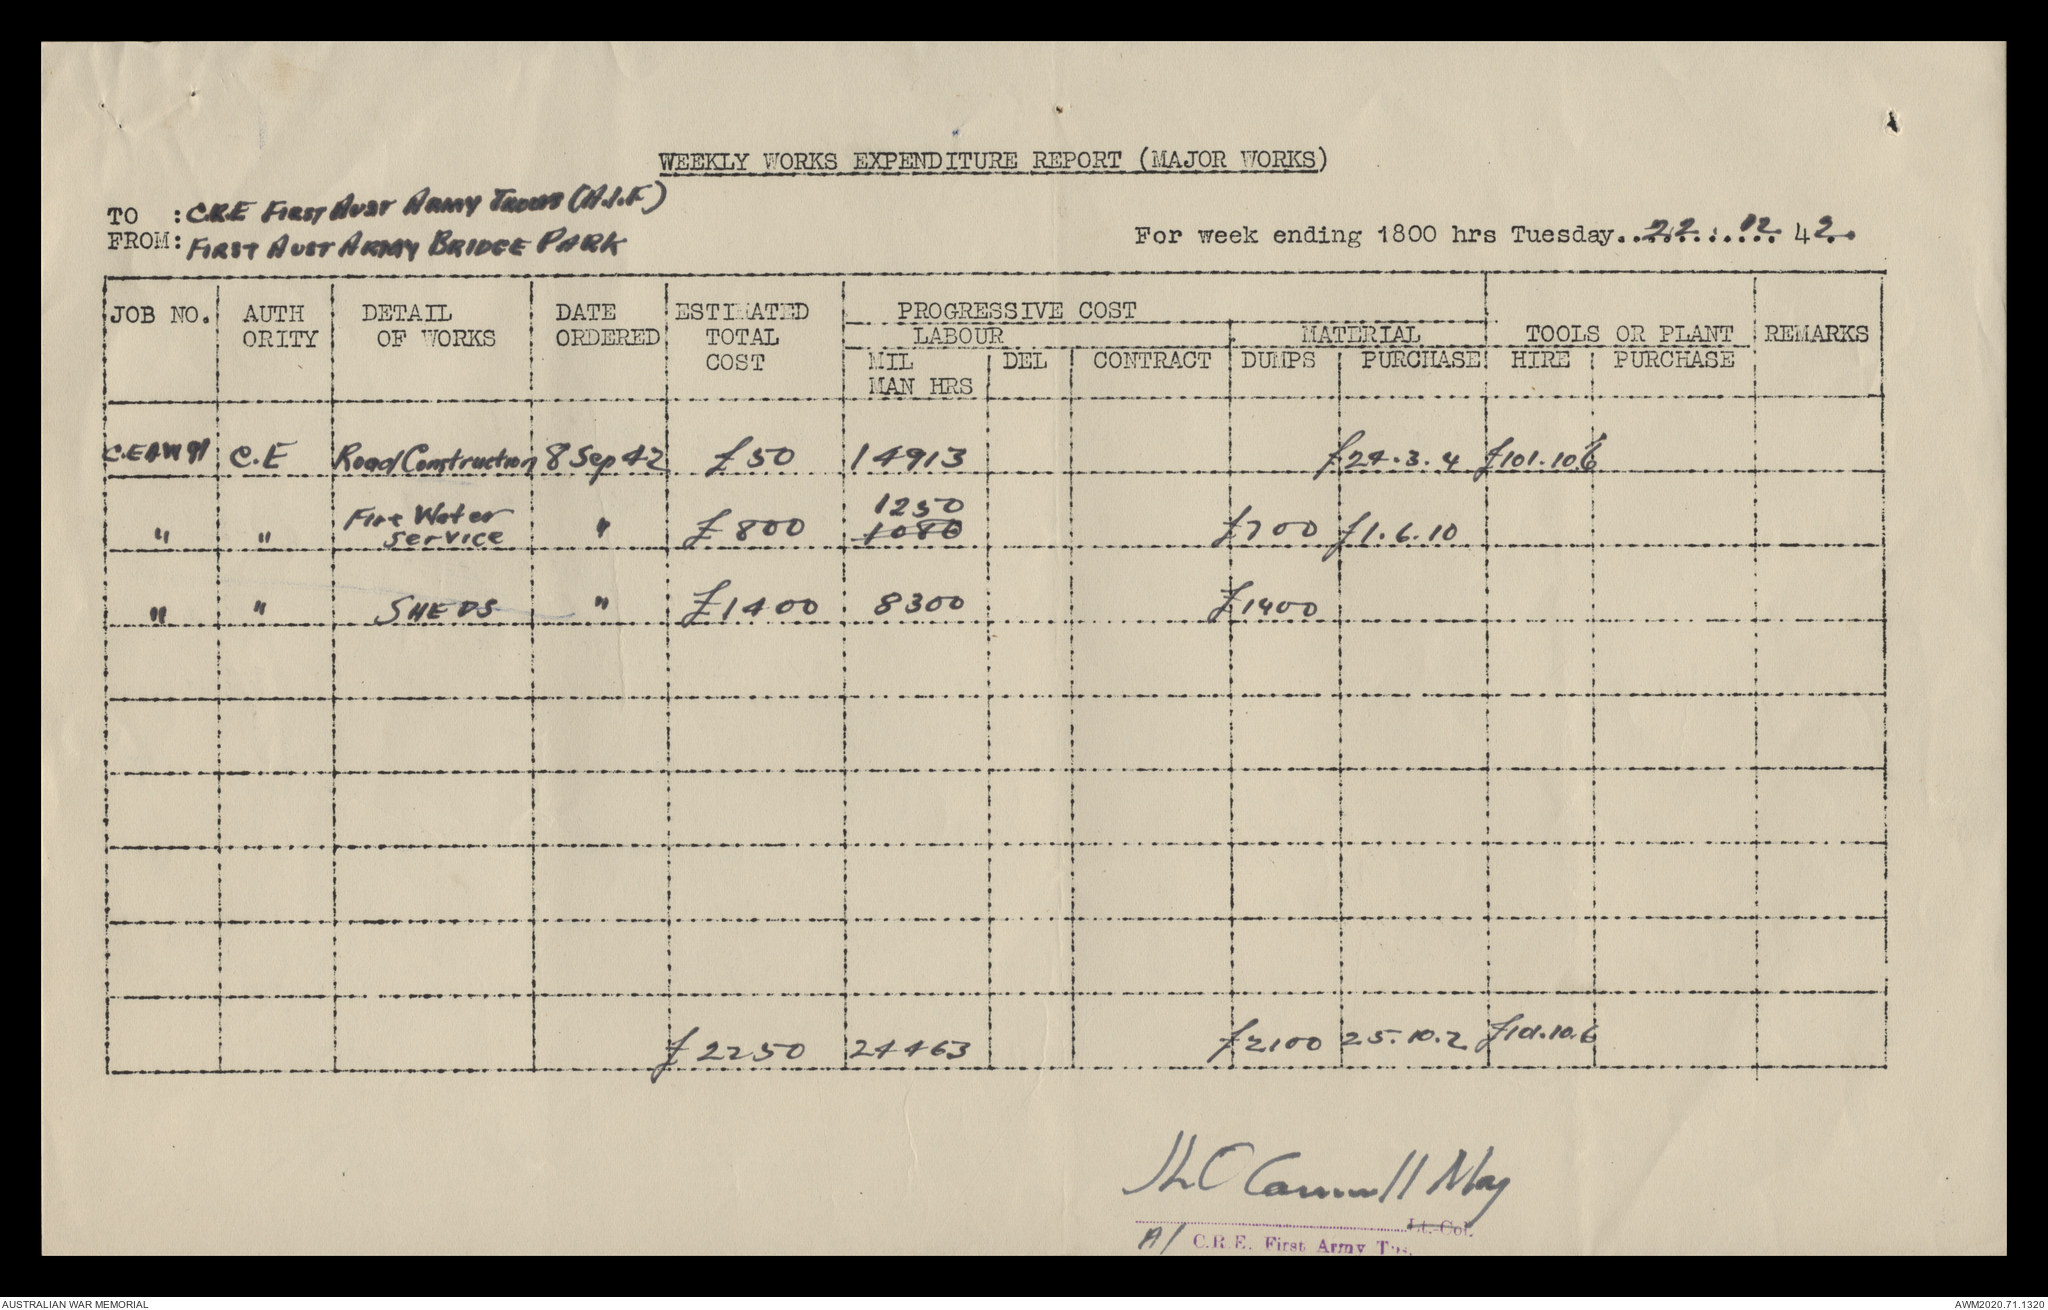 WEEKLY WORKS EXPENDITURE REPORT (MAJOR WORKS)
TO : C.R.E FIRST AUST ARMY TROOPS (A.I.F)
FROM: FIRST AUST ARMY BRIDGE PARK
For week ending 1800 hrs Tuesday..22..12.. 42.
JOB NO. AUTH DETAIL DATE ESTIMATED PROGRESSIVE COST
ORITY OF WORKS ORDERED TOTAL LABOUR MATERIAL TOOLS OR PLANT REMARKS
COST MIL DEL CONTRACT DUMPS PURCHASE HIRE PURCHASE
MAN HRS
C.E.A.W 91 C.E Road Construction 8 Sep 42 £50 14913 £24.3.4 £101.10.6
1250
" " Fire Water service " £800 1086 £700 £1.6.10
" " SHEDS " £1400 8300 £1400
£2250 24463 £2100 25.10.2 £101.10.6
Maj
Lt-Col.
A/ C.R.E. First Army Tps.
AUSTRALIAN WAR MEMORIAL
AWM2020.71.1320